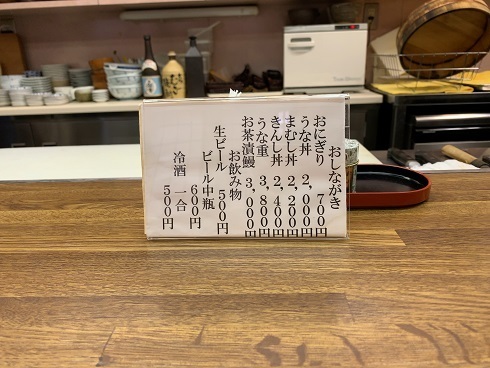 おしながき
おにぎり 700円
うな丼 2,000円
まむし丼 2,200円
きんし丼 2,400円
うな重 3,800円
お茶漬鰻 3,000円
お飲み物
生ビール 500円
ビール中瓶 600円
冷酒 一合 500円